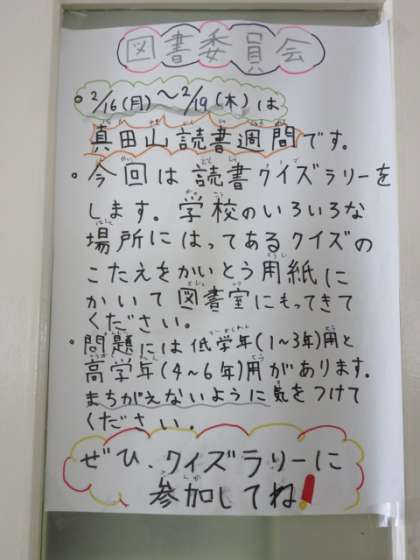 図書委員会
◦2/16(月)〜2/19(木)は
真田山読書週間です。
・今回は読書クイズラリーを
します。学校のいろいろな
場所にはってあるクイズの
こたえをかいとう用紙に
かいて図書室にもってきて
ください。
・問題には低学年(1〜3年)用と
高学年(4〜6年)用があります。
まちがえないように気をつけて
ください。
ぜひ、クイズラリーに
参加してね!